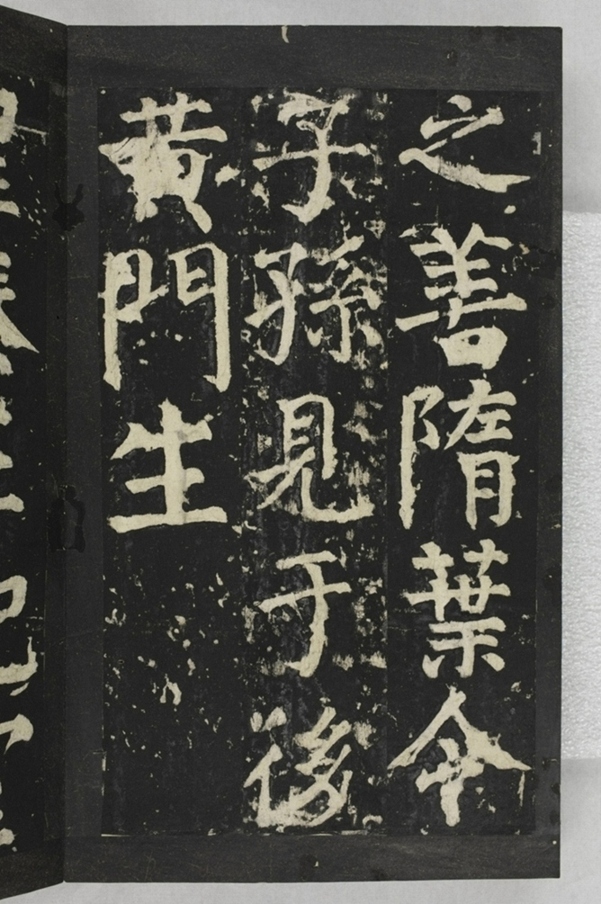 之善隋葉令
子孫見于後
黃門生